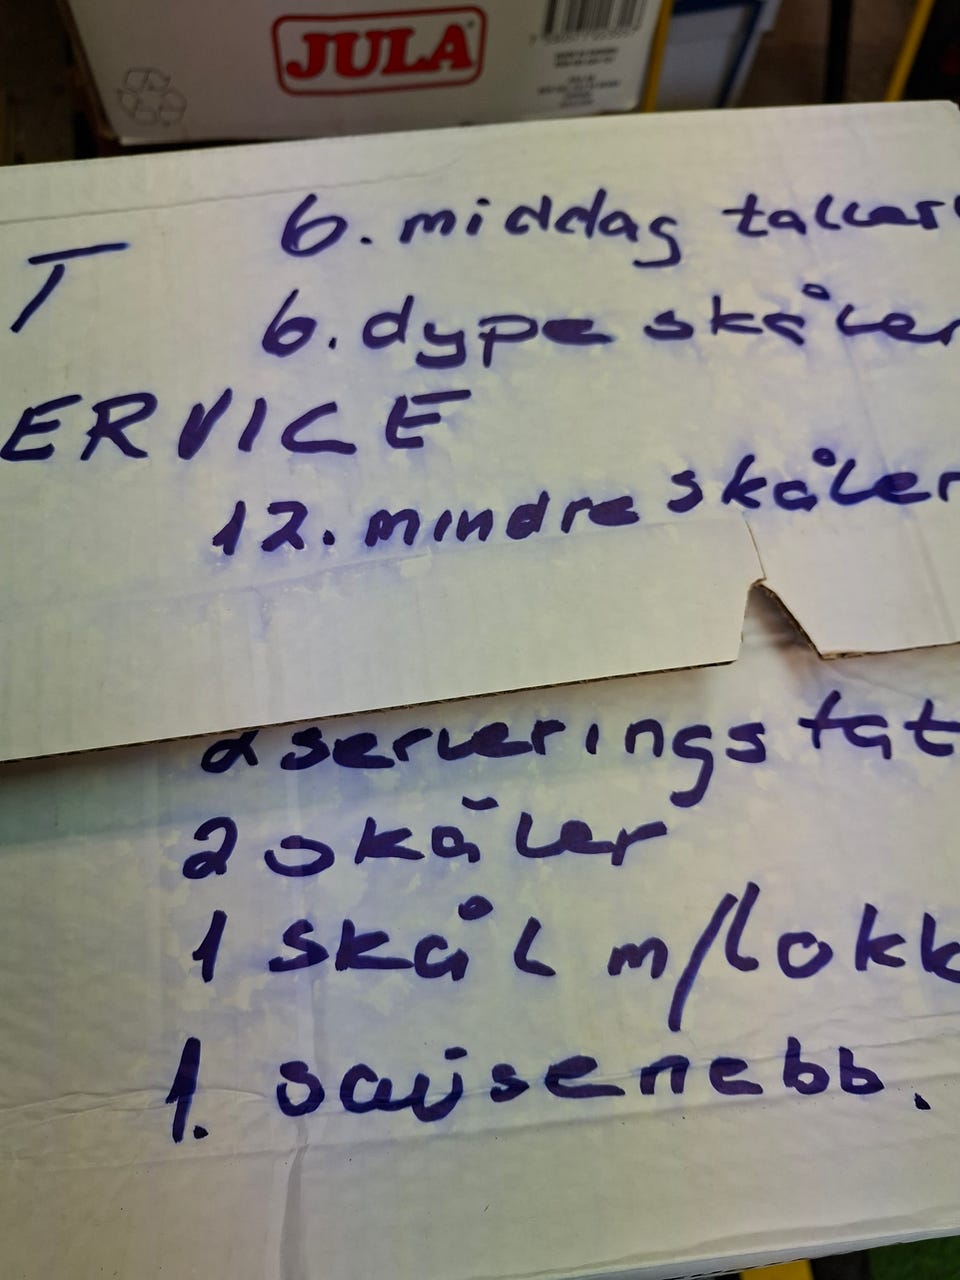 JULA
6. middag taller
T
6. dype skåler
ERVICE
12. mindre skåler
2 serverings fat
2 skåler
1 skål m/lokk
1. sausenebb.